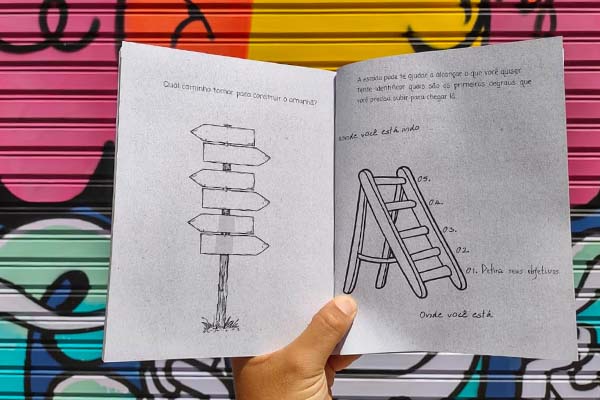 Qual caminho tomar para construir o amanhã?
A escada pode te ajudar a alcançar o que você quiser.
Tente identificar quais são os primeiros degraus que
você precisa subir para chegar lá.
onde você está indo
05.
04.
03.
02.
01. Defina seus objetivos
Onde você está